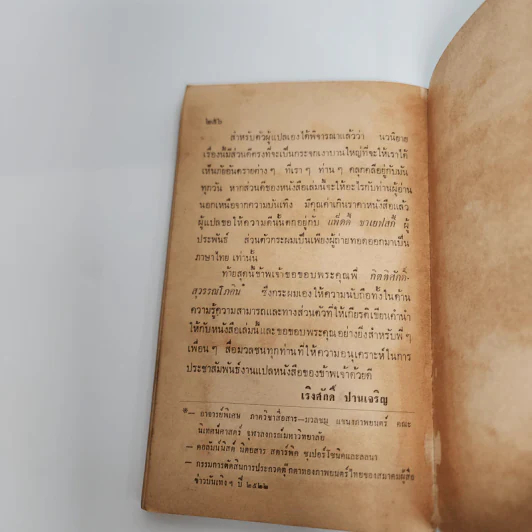 ๒๕๖
สำหรับตัวผู้แปลเองได้พิจารณาแล้วว่า นวนิยาย
เรื่องนี้มีส่วนดีตรงที่จะเป็นกระจกเงาบานใหญ่ที่จะให้เราได้
เห็นภัยอันตรายต่าง ๆ ที่เรา ๆ ท่าน ๆ คลุกคลีอยู่กับมัน
ทุกวัน หากส่วนดีของหนังสือเล่มนี้จะให้อะไรกับท่านผู้อ่าน
นอกเหนือจากความบันเทิง มีคุณค่าเกินราคาหนังสือแล้ว
ผู้แปลขอให้ความดีนั้นตกอยู่กับ แพ็ตตี้ ผู้
ประพันธ์ ส่วนตัวกระผมเป็นเพียงผู้ถ่ายทอดออกมาเป็น
ภาษาไทย เท่านั้น
ท้ายสุดนี้ข้าพเจ้าขอขอบพระคุณพี่ กิตติศักดิ์-
สุวรรณโภคิน* ซึ่งกระผมเองให้ความนับถือทั้งในด้าน
ความรู้ความสามารถและทางส่วนตัวที่ให้เกียรติเขียนคำนำ
ให้กับหนังสือเล่มนี้และขอขอบพระคุณอย่างยิ่งสำหรับพี่ ๆ
เพื่อน ๆ สื่อมวลชนทุกท่านที่ให้ความอนุเคราะห์ในการ
ประชาสัมพันธ์งานแปลหนังสือของข้าพเจ้าด้วยดี
เริงศักดิ์ ปานเจริญ
*— อาจารย์พิเศษ ภาควิชาสื่อสาร-มวลชน แขนงภาพยนตร์ คณะ
นิเทศศาสตร์ จุฬาลงกรณ์มหาวิทยาลัย
— คอลัมน์นิสต์ นิตยสาร สตาร์พิค ซุเปอร์โซนิคและลลนา
— กรรมการตัดสินการประกวดตุ๊กตาทองภาพยนตร์ไทยของสมาคมผู้สื่อ
ข่าวบันเทิง ๆ ปี ๒๕๒๒